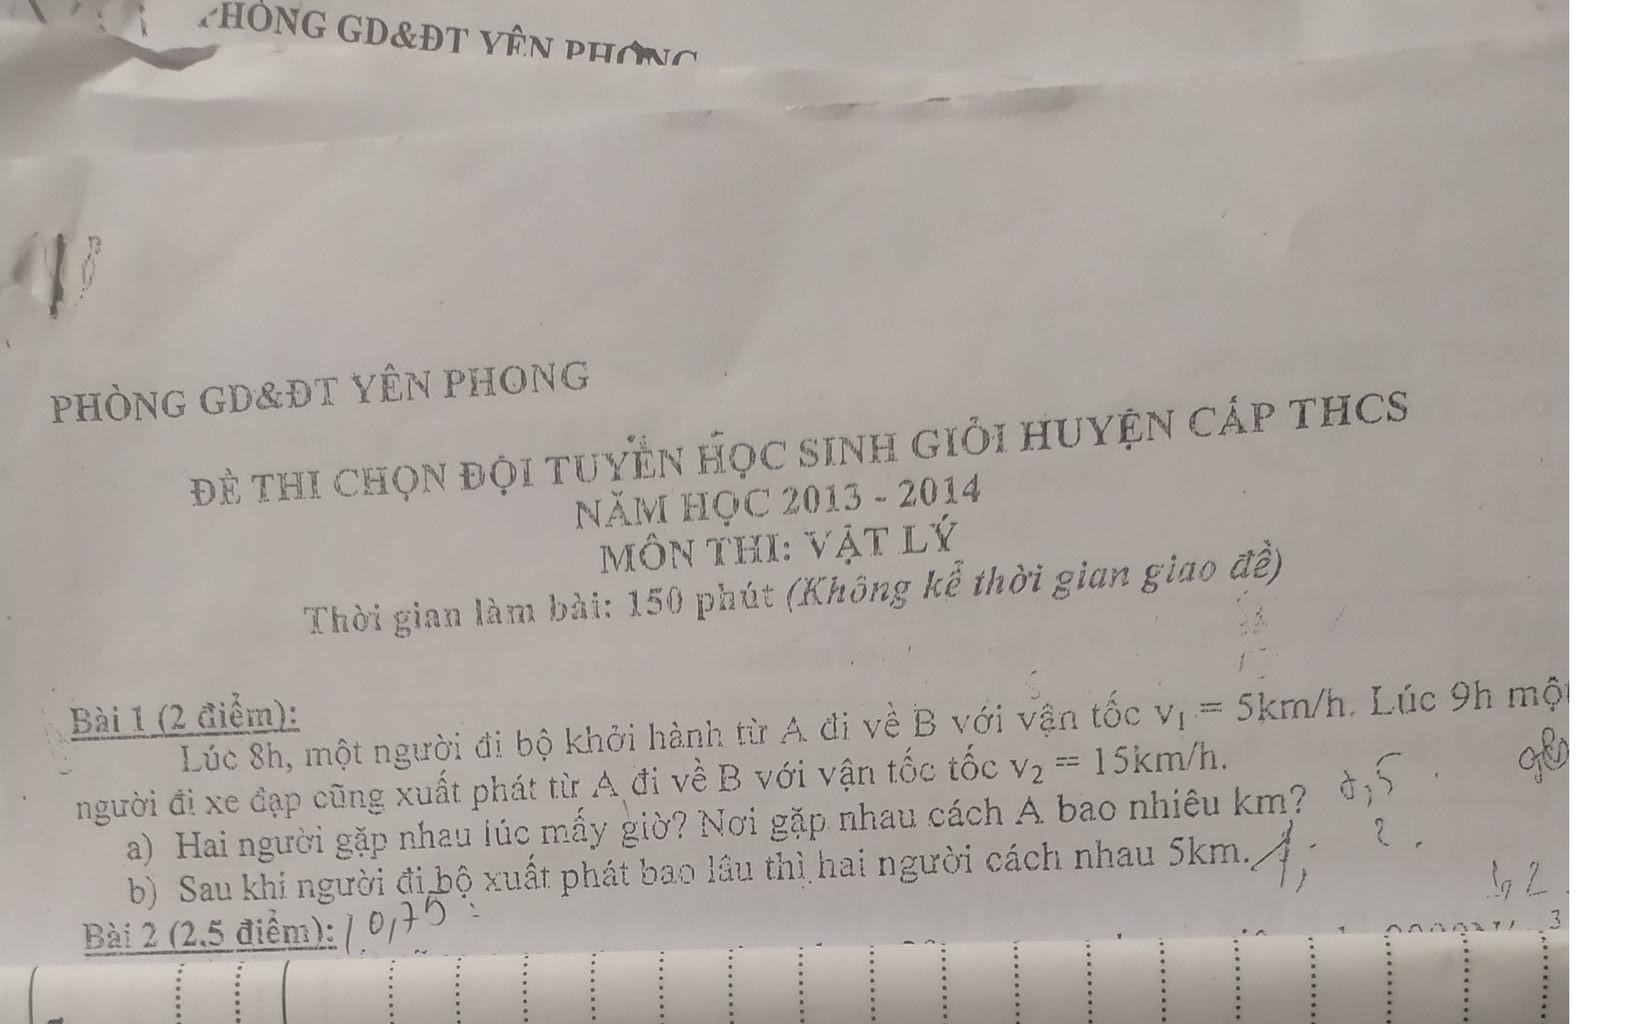 PHÒNG GD&ĐT YÊN PHONG
PHÒNG GD&ĐT YÊN PHONG
ĐỀ THI CHỌN ĐỘI TUYỂN HỌC SINH GIỎI HUYỆN CẤP THCS
NĂM HỌC 2013 - 2014
MÔN THI: VẬT LÝ
Thời gian làm bài: 150 phút (Không kể thời gian giao đề)
Bài 1 (2 điểm):
Lúc 8h, một người đi bộ khởi hành từ A đi về B với vận tốc v₁ = 5km/h. Lúc 9h một
người đi xe đạp cũng xuất phát từ A đi về B với vận tốc tốc v₂ = 15km/h.
a) Hai người gặp nhau lúc mấy giờ? Nơi gặp nhau cách A bao nhiêu km?
b) Sau khi người đi bộ xuất phát bao lâu thì hai người cách nhau 5km.
Bài 2 (2,5 điểm): 0,75